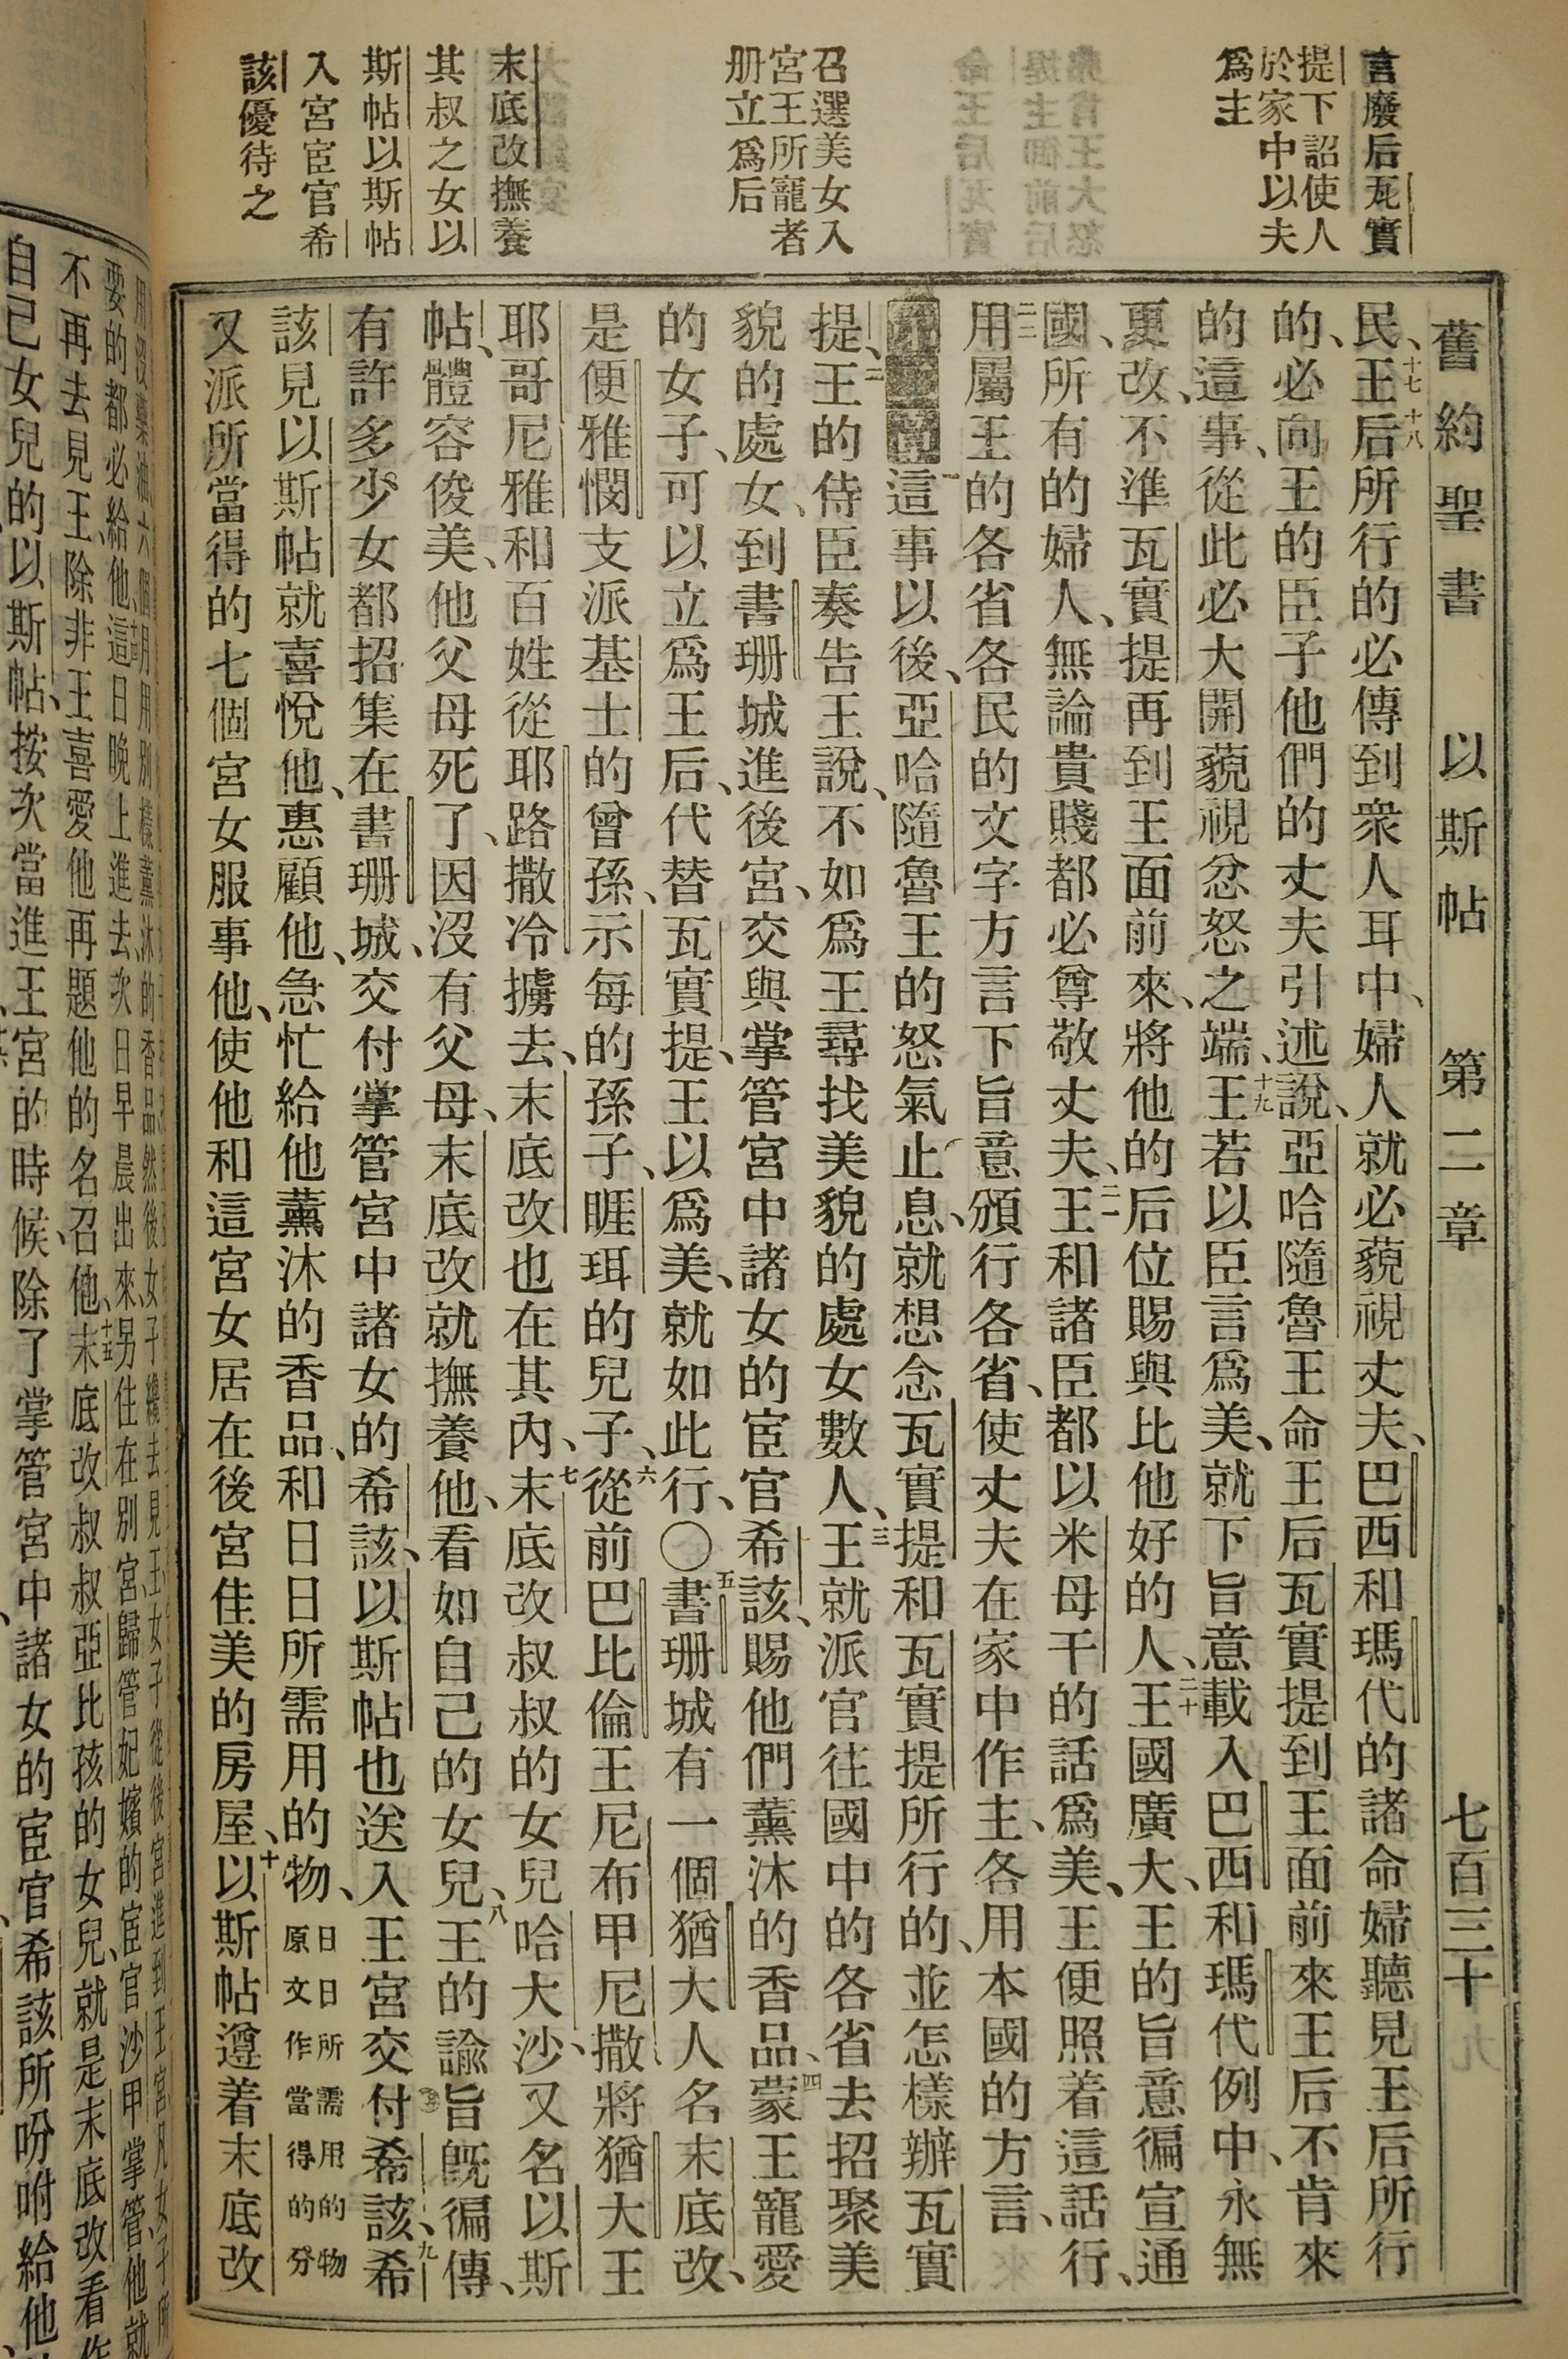 言廢后瓦實
提下詔使人
於家中以夫
爲主
召選美女入
宮王所寵者
册立爲后
末底改撫養
其叔之女以
斯帖以斯帖
入宮宦官希
該優待之
舊約聖書 以斯帖 第二章 七百三十
民、十七王十八后所行的必傳到衆人耳中、婦人就必藐視丈夫、巴西和瑪代的諸命婦聽見王后所行
的、必向王的臣子他們的丈夫引述說、亞哈隨魯王命王后瓦實提到王面前來王后不肯來
的這事、從此必大開藐視忿怒之端、十九王若以臣言爲美、就下旨意載入巴西和瑪代例中、永無
更改、不準瓦實提再到王面前來、將他的后位賜與比他好的人、二十王國廣大、王的旨意徧宣通
國、所有的婦人、無論貴賤都必尊敬丈夫、二一王和諸臣都以米母干的話爲美、王便照着這話行、
二二用屬王的各省各民的文字方言下旨意頒行各省、使丈夫在家中作主、各用本國的方言、
第二章一這事以後、亞哈隨魯王的怒氣止息、就想念瓦實提和瓦實提所行的、並怎樣辦瓦實
提、二王的侍臣奏告王說、不如爲王尋找美貌的處女數人、三王就派官往國中的各省去招聚美
貌的處女、到書珊城進後宮、交與掌管宮中諸女的宦官希該、賜他們薰沐的香品、四蒙王寵愛
的女子、可以立爲王后、代替瓦實提、王以爲美、就如此行、〇五書珊城有一個猶大人名末底改、
是便雅憫支派基士的曾孫、示每的孫子、睚珥的兒子、六從前巴比倫王尼布甲尼撒將猶大王
耶哥尼雅和百姓從耶路撒冷擄去、末底改也在其內、七末底改叔叔的女兒哈大沙、又名以斯
帖、體容俊美、他父母死了、因沒有父母、末底改就撫養他、看如自己的女兒、八王的諭旨旣徧傳、
有許多少女都招集在書珊城、交付掌管宮中諸女的希該、以斯帖也送入王宮交付希該、九希
該見以斯帖就喜悅他、惠顧他、急忙給他薰沐的香品、和日日所需用的物、日日所需用的物原文作當得的分
又派所當得的七個宮女服事他、使他和這宮女居在後宮佳美的房屋、十以斯帖遵着末底改
要的都必給他、這日晚上進去次日早晨出來、另住在別宮、歸管妃嬪的宦官沙甲掌管、他就
不再去見王、除非王喜愛他再題他的名召他、十五末底改叔叔亞比孩的女兒、就是末底改看作
自己女兒的以斯帖、按次當進王宮的時候、除了掌管宮中諸女的宦官希該所吩咐給他